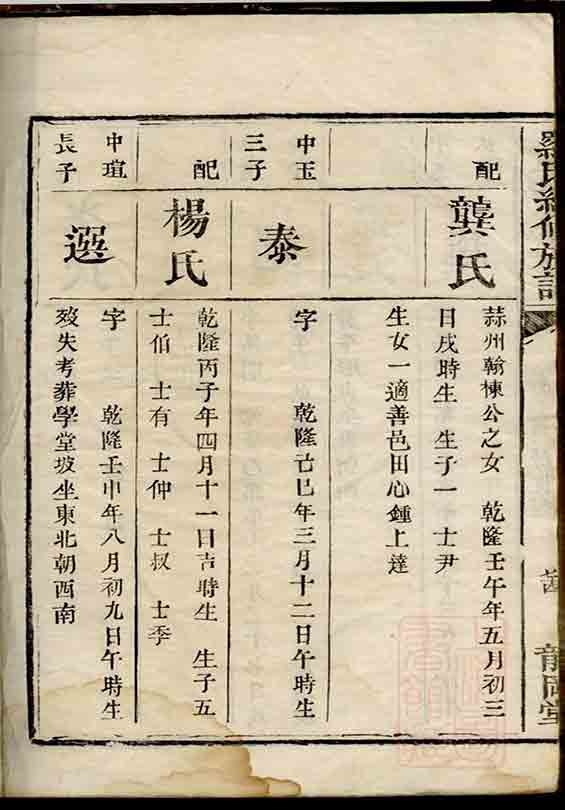 羅氏續修族譜
龍岡堂
配
龔氏
蒜州翰棟公之女 乾隆壬午年五月初三
日戌時生 生子一 士尹
生女一適善邑田心鍾上達
中玉
三子
泰
字 乾隆己巳年三月十二日午時生
配
楊氏
乾隆丙子年四月十一日吉時生 生子五
士伯 士有 士仲 士叔 士季
中瑄
長子
選
字 乾隆壬申年八月初九日午時生
歿失考葬學堂坡坐東北朝西南